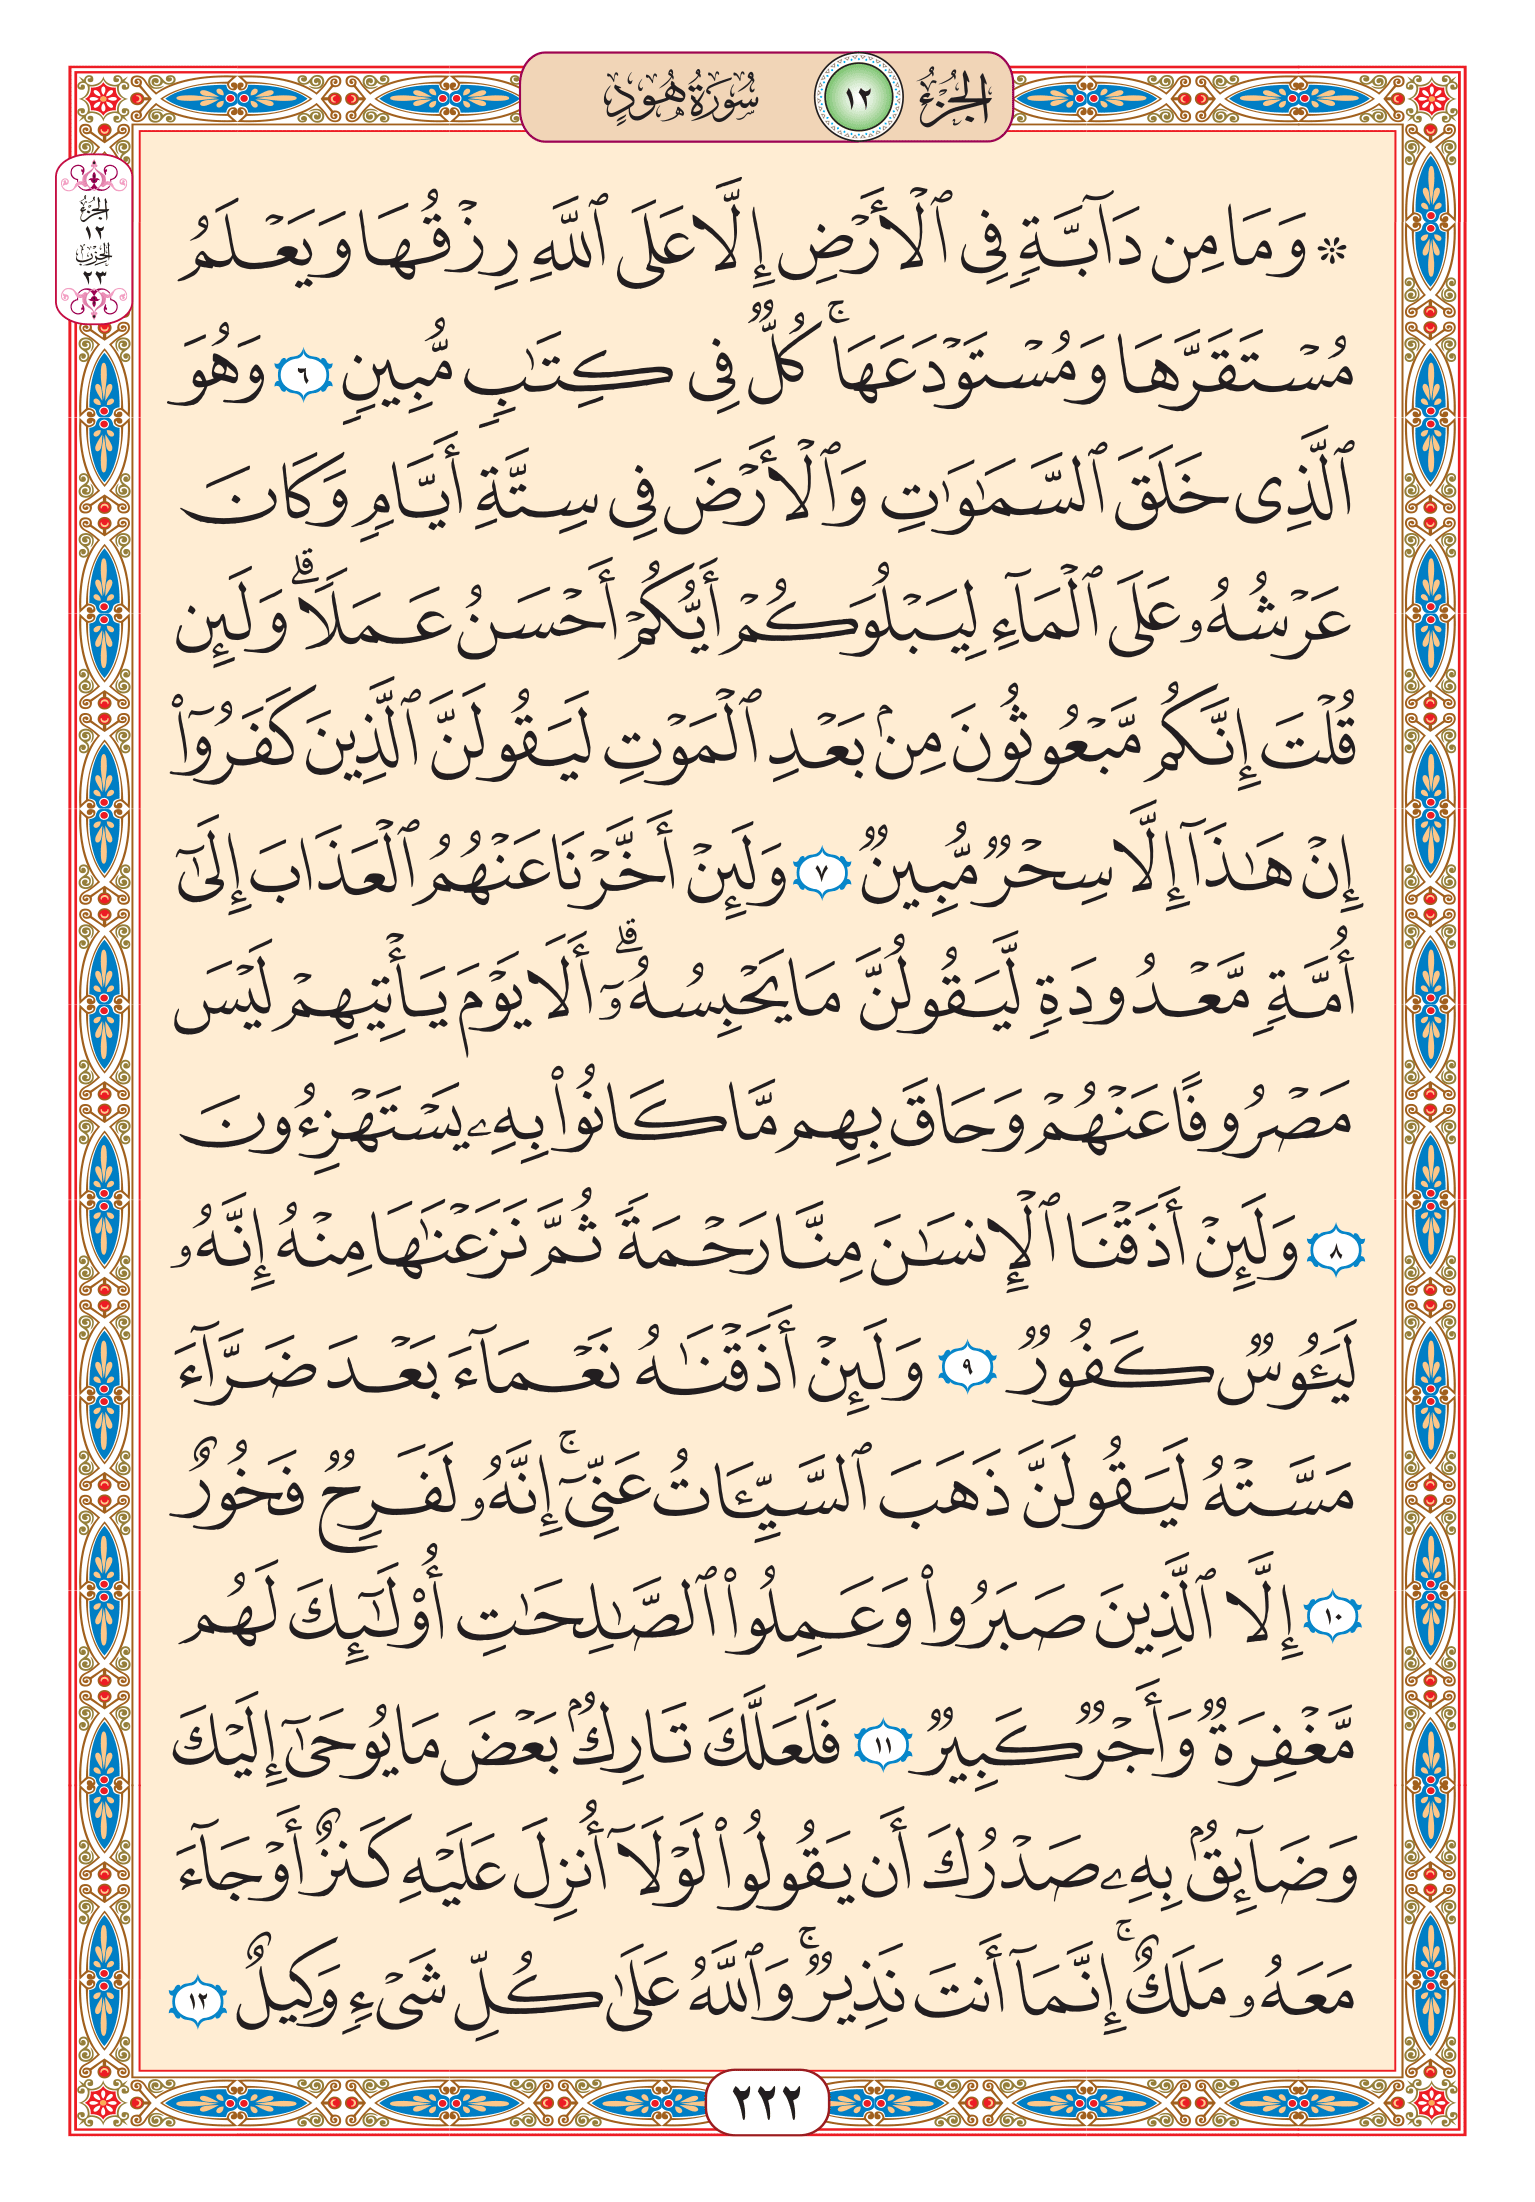 الجزء ١٢ سورة هود
الجزء
١٢
الحزب
٢٣
۞ وَمَا مِن دَآبَّةٍ فِى ٱلْأَرْضِ إِلَّا عَلَى ٱللَّهِ رِزْقُهَا وَيَعْلَمُ
مُسْتَقَرَّهَا وَمُسْتَوْدَعَهَا ۚ كُلٌّ فِى كِتَٰبٍ مُّبِينٍ ٦ وَهُوَ
ٱلَّذِى خَلَقَ ٱلسَّمَٰوَٰتِ وَٱلْأَرْضَ فِى سِتَّةِ أَيَّامٍ وَكَانَ
عَرْشُهُۥ عَلَى ٱلْمَآءِ لِيَبْلُوَكُمْ أَيُّكُمْ أَحْسَنُ عَمَلًا ۗ وَلَئِن
قُلْتَ إِنَّكُم مَّبْعُوثُونَ مِنۢ بَعْدِ ٱلْمَوْتِ لَيَقُولَنَّ ٱلَّذِينَ كَفَرُوٓا۟
إِنْ هَٰذَآ إِلَّا سِحْرٌ مُّبِينٌ ٧ وَلَئِنْ أَخَّرْنَا عَنْهُمُ ٱلْعَذَابَ إِلَىٰٓ
أُمَّةٍ مَّعْدُودَةٍ لَّيَقُولُنَّ مَا يَحْبِسُهُۥٓ ۗ أَلَا يَوْمَ يَأْتِيهِمْ لَيْسَ
مَصْرُوفًا عَنْهُمْ وَحَاقَ بِهِم مَّا كَانُوا۟ بِهِۦ يَسْتَهْزِءُونَ
٨ وَلَئِنْ أَذَقْنَا ٱلْإِنسَٰنَ مِنَّا رَحْمَةً ثُمَّ نَزَعْنَٰهَا مِنْهُ إِنَّهُۥ
لَيَـُٔوسٌ كَفُورٌ ٩ وَلَئِنْ أَذَقْنَٰهُ نَعْمَآءَ بَعْدَ ضَرَّآءَ
مَسَّتْهُ لَيَقُولَنَّ ذَهَبَ ٱلسَّيِّـَٔاتُ عَنِّىٓ ۚ إِنَّهُۥ لَفَرِحٌ فَخُورٌ
١٠ إِلَّا ٱلَّذِينَ صَبَرُوا۟ وَعَمِلُوا۟ ٱلصَّٰلِحَٰتِ أُو۟لَٰٓئِكَ لَهُم
مَّغْفِرَةٌ وَأَجْرٌ كَبِيرٌ ١١ فَلَعَلَّكَ تَارِكٌۢ بَعْضَ مَا يُوحَىٰٓ إِلَيْكَ
وَضَآئِقٌۢ بِهِۦ صَدْرُكَ أَن يَقُولُوا۟ لَوْلَآ أُنزِلَ عَلَيْهِ كَنزٌ أَوْ جَآءَ
مَعَهُۥ مَلَكٌ ۚ إِنَّمَآ أَنتَ نَذِيرٌ ۚ وَٱللَّهُ عَلَىٰ كُلِّ شَىْءٍ وَكِيلٌ ١٢
٢٢٢